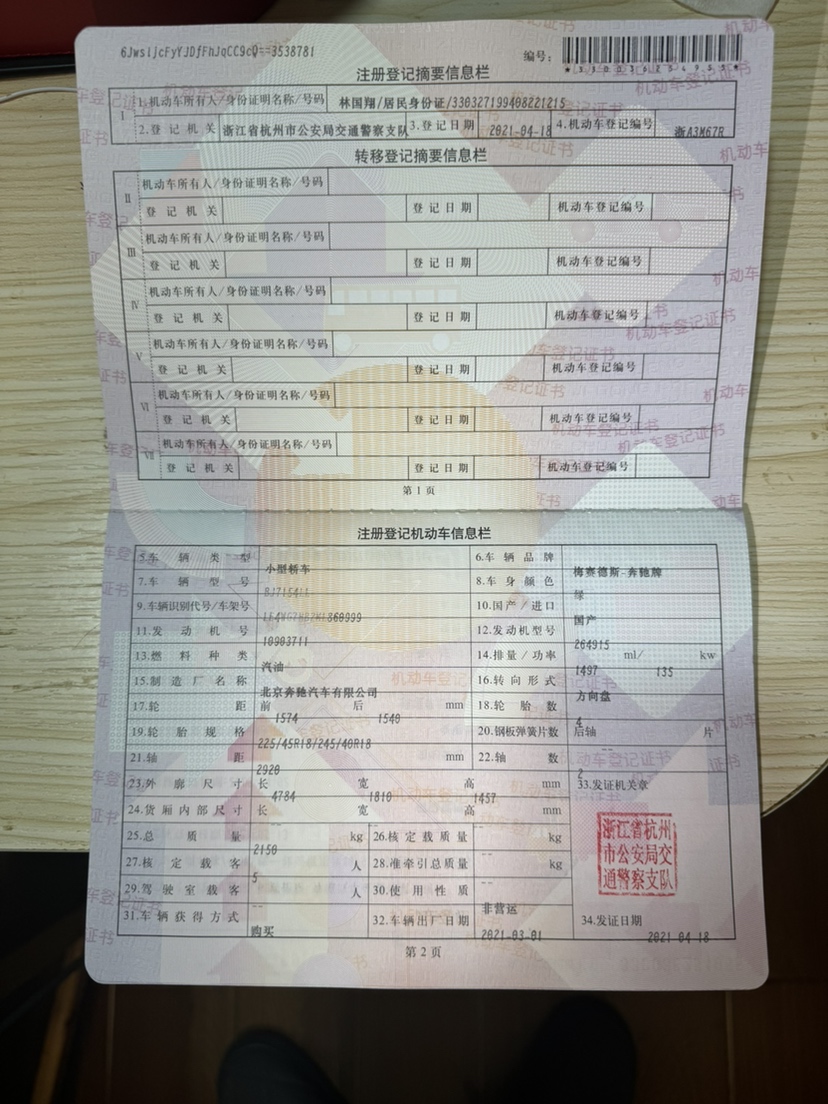 6JwsljcFyYJDfFhJqCC9cQ==3538781
编号:
注册登记摘要信息栏
I 1.机动车所有人/身份证明名称/号码 林国翔/居民身份证/330327199408221215
2.登记机关 浙江省杭州市公安局交通警察支队 3.登记日期 2021-04-18 4.机动车登记编号 浙A3M67R
转移登记摘要信息栏
II 机动车所有人/身份证明名称/号码
登记机关 登记日期 机动车登记编号
III 机动车所有人/身份证明名称/号码
登记机关 登记日期 机动车登记编号
IV 机动车所有人/身份证明名称/号码
登记机关 登记日期 机动车登记编号
V 机动车所有人/身份证明名称/号码
登记机关 登记日期 机动车登记编号
VI 机动车所有人/身份证明名称/号码
登记机关 登记日期 机动车登记编号
VII 机动车所有人/身份证明名称/号码
登记机关 登记日期 机动车登记编号
第1页
注册登记机动车信息栏
5.车辆类型 小型轿车 6.车辆品牌 梅赛德斯-奔驰牌
7.车辆型号 BJ7154LL 8.车身颜色 绿
9.车辆识别代号/车架号 10.国产/进口 国产
11.发动机号 10903711 12.发动机型号 264915
13.燃料种类 汽油 14.排量/功率 1497 ml/ 135 kw
15.制造厂名称 北京奔驰汽车有限公司 16.转向形式 方向盘
17.轮距 前 1574 后 1540 mm 18.轮胎数 4
19.轮胎规格 225/45R18/245/40R18 20.钢板弹簧片数 后轴 -- 片
21.轴距 2920 mm 22.轴数 2
23.外廓尺寸 长 4784 宽 1810 高 1457 mm 33.发证机关章
24.货厢内部尺寸 长 宽 高 mm
25.总质量 2150 kg 26.核定载质量 -- kg
27.核定载客 5 人 28.准牵引总质量 -- kg
29.驾驶室载客 -- 人 30.使用性质 非营运
31.车辆获得方式 购买 32.车辆出厂日期 2021-03-01 34.发证日期 2021-04-18
浙江省杭州
市公安局交
通警察支队
第2页